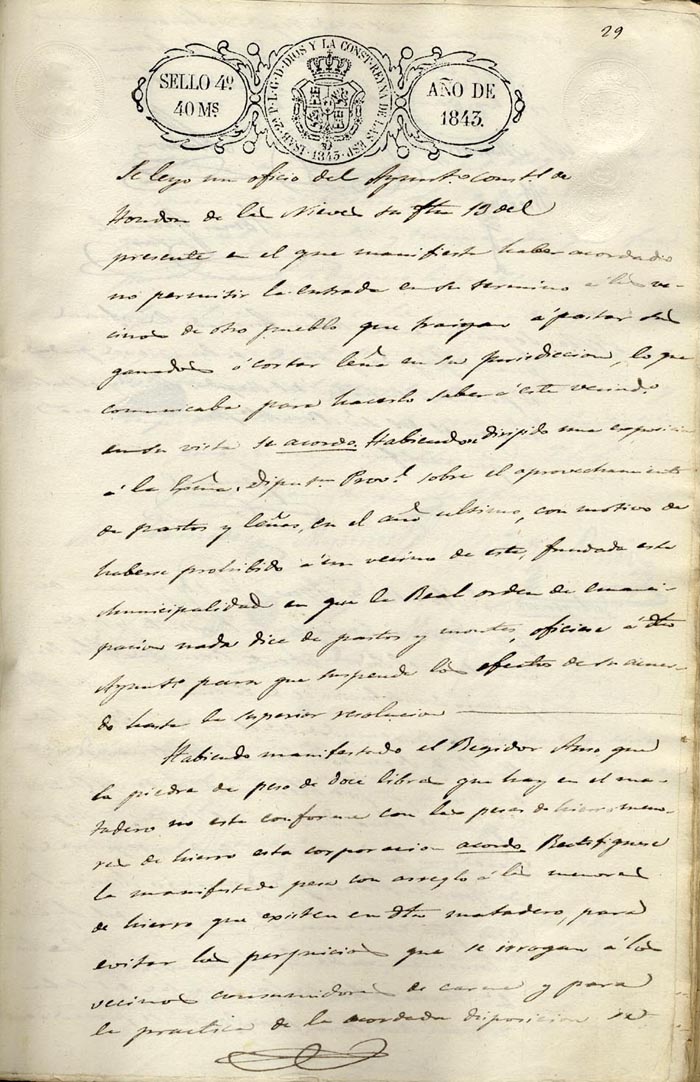 29
SELLO 4º
40 Mˢ
ISAB. 2ª P. L. G. D. DIOS Y LA CONST. REYNA DE LAS ESP.
1843
AÑO DE
1843.
Se leyo un oficio del Ayuntº Constˡ de
Hondon de las Nieves su fha 13 del
presente en el que manifiesta haber acordado
no permitir la entrada en su termino á los ve-
cinos de otro pueblo que traigan á pastar sus
ganados ó cortar leña en su jurisdiccion, lo que
comunicaba para hacerlo saber á este vecindº
en su vista se acordo. Habiendose dirijido una exposicion
á la Exma. Diputⁿ Provˡ sobre el aprovechamiento
de pastos y leñas, en el año ultimo, con motivo de
haberse prohibido á un vecino de este, fundada esta
Municipalidad en que la Real orden de emanci-
pacion nada dice de pastos y montes, oficiese á dho
Ayuntº para que suspenda los efectos de su acuer-
do hasta la superior resolucion
Habiendo manifestado el Regidor que
la piedra de peso de doce libras que hay en el ma-
tadero no esta conforme con las pesas de hierro meno-
res de hierro esta corporacion acordo Rectifiquese
la manifestada pesa con arreglo á las menores
de hierro que existen en dho matadero, para
evitar los perjuicios que se irrogan á los
vecinos consumidores de carne y para
la practica de la acordada disposicion se